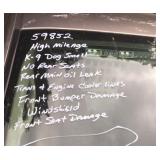 59852
High Mileage
K-9 Dog Smell
No Rear Seats
Rear Main Oil Leak
Trans & Engine Cooler lines
Front Bumper Damage
Windshield
Front Seat Damage